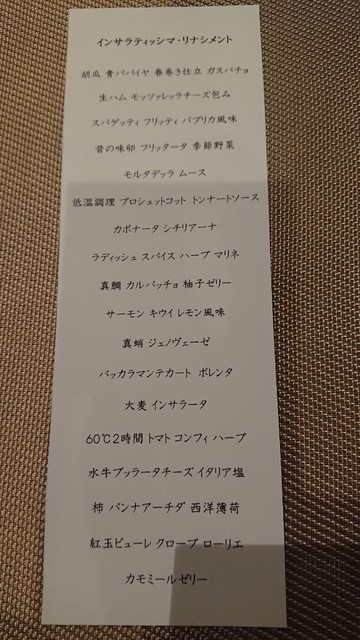 インサラティッシマ・リナシメント
胡瓜 青パパイヤ 春巻き仕立 ガスパチョ
生ハム モッツァレッラチーズ包み
スパゲッティ フリッティ パプリカ風味
昔の味卵 フリッタータ 季節野菜
モルタデッラ ムース
低温調理 プロシュットコット トンナートソース
カポナータ シチリアーナ
ラディッシュ スパイス ハーブ マリネ
真鯛 カルパッチョ 柚子ゼリー
サーモン キウイ レモン風味
真蛸 ジェノヴェーゼ
バッカラマンテカート ポレンタ
大麦 インサラータ
60℃2時間 トマト コンフィ ハーブ
水牛ブッラータチーズ イタリア塩
柿 パンナアーチダ 西洋薄荷
紅玉ピューレ クローブ ローリエ
カモミールゼリー